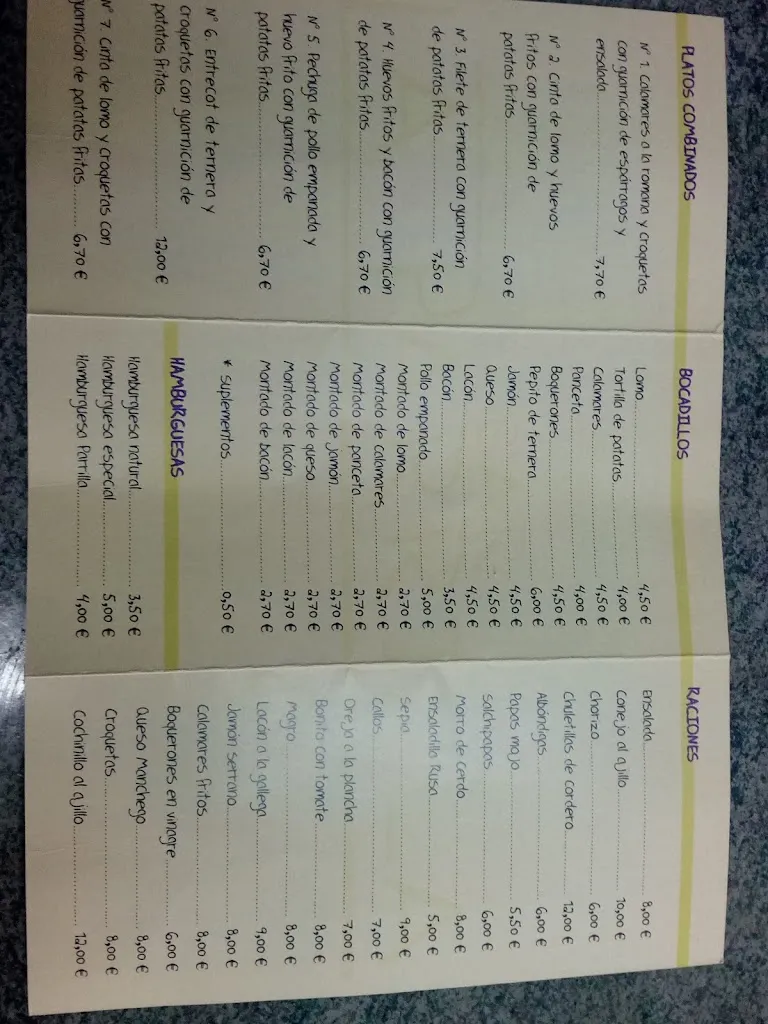 PLATOS COMBINADOS
Nº 1. Calamares a la romana y croquetas
con guarnición de espárragos y
ensalada.................... 7,70 €
Nº 2. Cinta de lomo y huevos
fritos con guarnición de
patatas fritas.................... 6,70 €
Nº 3. Filete de ternera con guarnición
de patatas fritas.................... 7,50 €
Nº 4. Huevos fritos y bacón con guarnición
de patatas fritas.................... 6,70 €
Nº 5. Pechuga de pollo empanada y
huevo frito con guarnición de
patatas fritas.................... 6,70 €
Nº 6. Entrecot de ternera y
croquetas con guarnición de
patatas fritas.................... 12,00 €
Nº 7. Cinta de lomo y croquetas con
guarnición de patatas fritas.......... 6,70 €
BOCADILLOS
Lomo.................... 4,50 €
Tortilla de patatas.................... 4,00 €
Calamares.................... 4,50 €
Panceta.................... 4,00 €
Boquerones.................... 4,50 €
Pepito de ternera.................... 6,00 €
Jamón.................... 4,50 €
Queso.................... 4,50 €
Lacón.................... 4,50 €
Bacón.................... 3,50 €
Pollo empanado.................... 5,00 €
Montado de lomo.................... 2,70 €
Montado de calamares.................... 2,70 €
Montado de panceta.................... 2,70 €
Montado de jamón.................... 2,70 €
Montado de queso.................... 2,70 €
Montado de lacón.................... 2,70 €
Montado de bacón.................... 2,70 €
* suplementos.................... 0,50 €
HAMBURGUESAS
Hamburguesa natural.................... 3,50 €
Hamburguesa especial.................... 5,00 €
Hamburguesa Parrilla.................... 4,00 €
RACIONES
Ensalada.................... 8,00 €
Conejo al ajillo.................... 10,00 €
Chorizo.................... 6,00 €
Chuletillas de cordero.................... 12,00 €
Albóndigas.................... 6,00 €
Papas mojo.................... 5,50 €
Salchipapas.................... 6,00 €
Morro de cerdo.................... 8,00 €
Ensaladilla Rusa.................... 5,00 €
Sepia.................... 9,00 €
Callos.................... 7,00 €
Oreja a la plancha.................... 7,00 €
Bonito con tomate.................... 8,00 €
Magro.................... 8,00 €
Lacón a la gallega.................... 9,00 €
Jamón serrano.................... 8,00 €
Calamares fritos.................... 8,00 €
Boquerones en vinagre.................... 6,00 €
Queso Manchego.................... 8,00 €
Croquetas.................... 8,00 €
Cochinillo al ajillo.................... 12,00 €